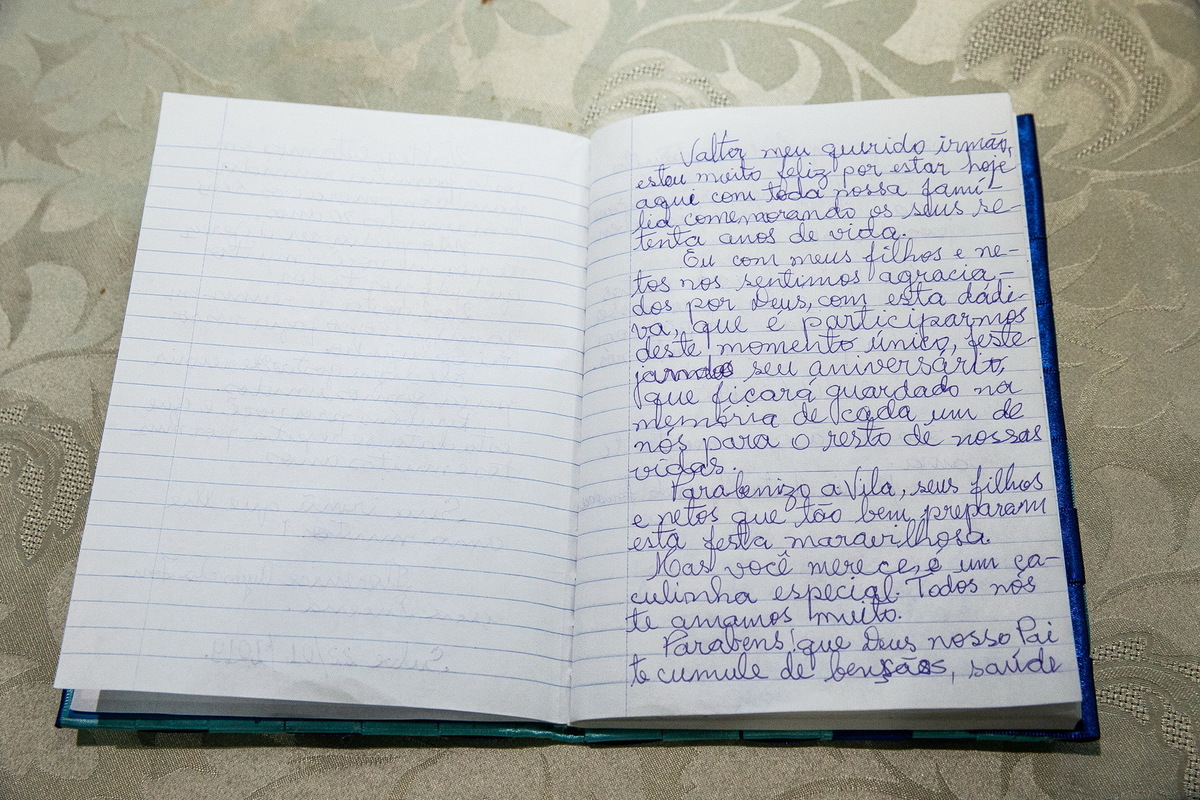 Valter meu querido irmão,
estou muito feliz por estar hoje
aqui com toda nossa famí-
lia comemorando os seus se-
tenta anos de vida.
Eu com meus filhos e ne-
tos nos sentimos agracia-
dos por Deus, com esta dádi-
va, que é participarmos
deste momento único, feste-
jando seu aniversário,
que ficará guardado na
memória de cada um de
nós para o resto de nossas
vidas.
Parabenizo a Vila, seus filhos
e netos que tão bem preparam
esta festa maravilhosa.
Mas você merece, é um ca-
culinha especial. Todos nós
te amamos muito.
Parabens! que Deus nosso Pai
te cumule de bençãos, saúde